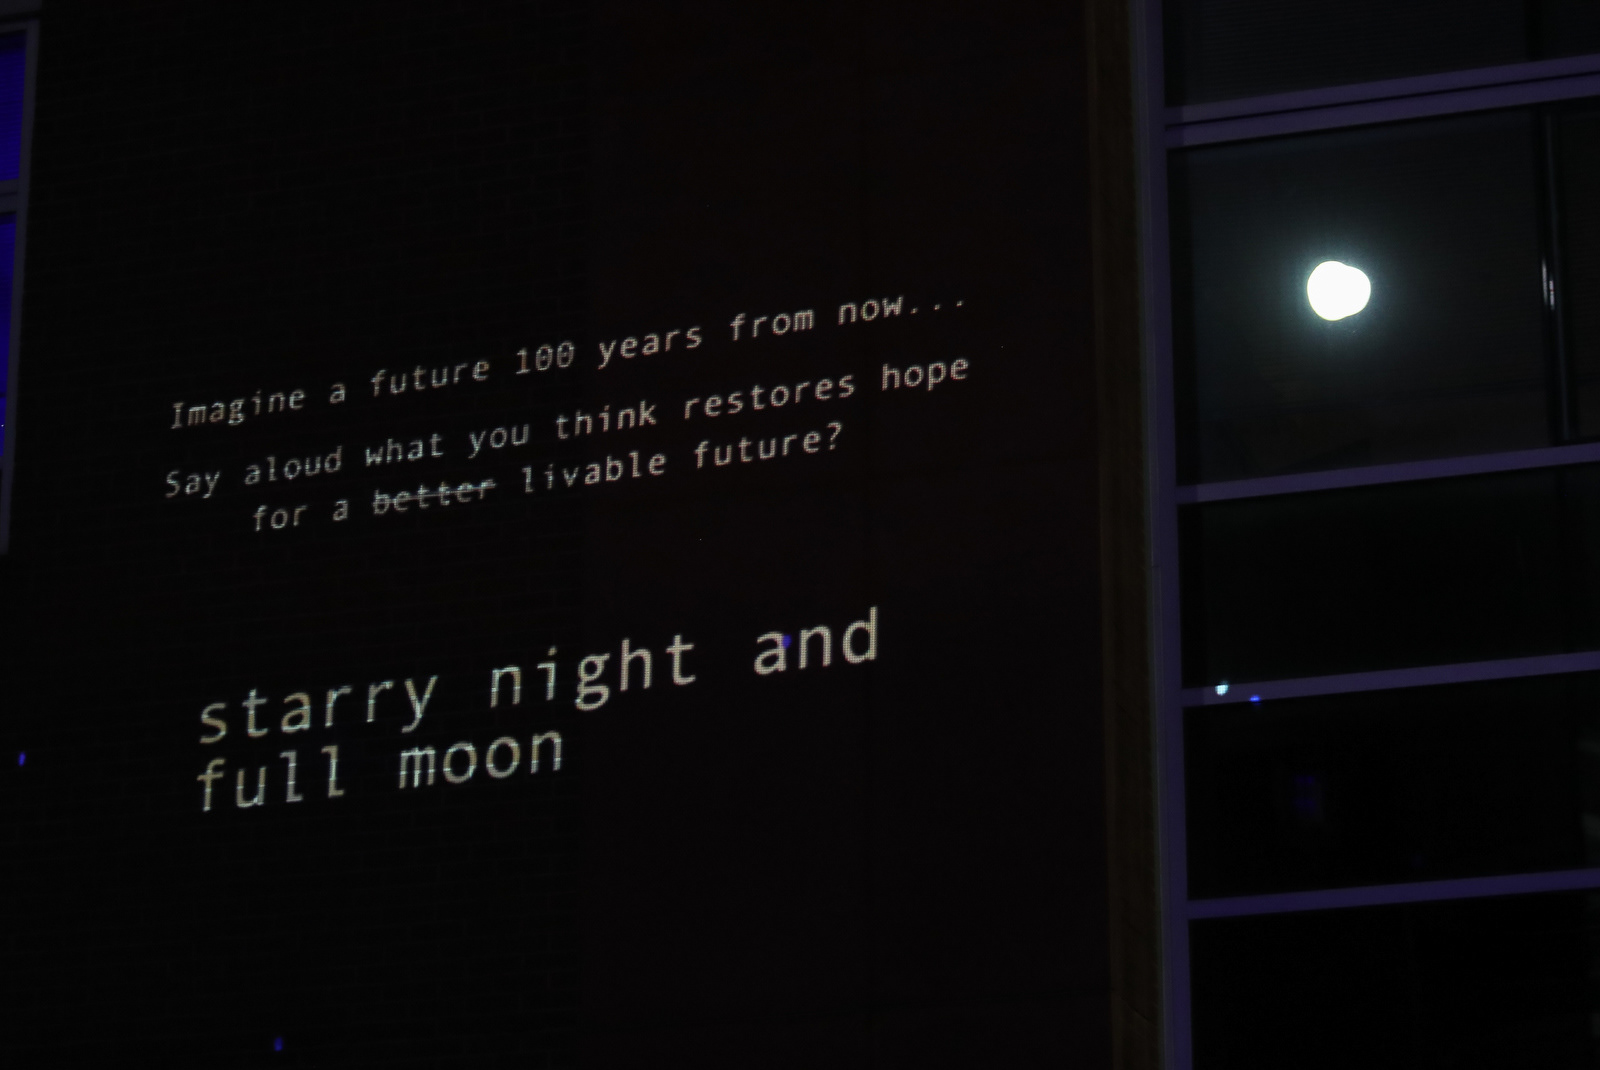 Imagine a future 100 years from now...
Say aloud what you think restores hope
for a better livable future?
starry night and
full moon